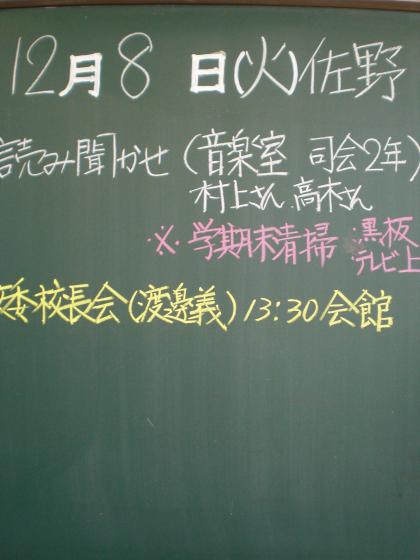 12月8日(火)佐野
読み聞かせ(音楽室 司会2年)
村上さん 高木さん
※学期末清掃 ・黒板
・テレビ上
校長会(渡邊義)13:30会館